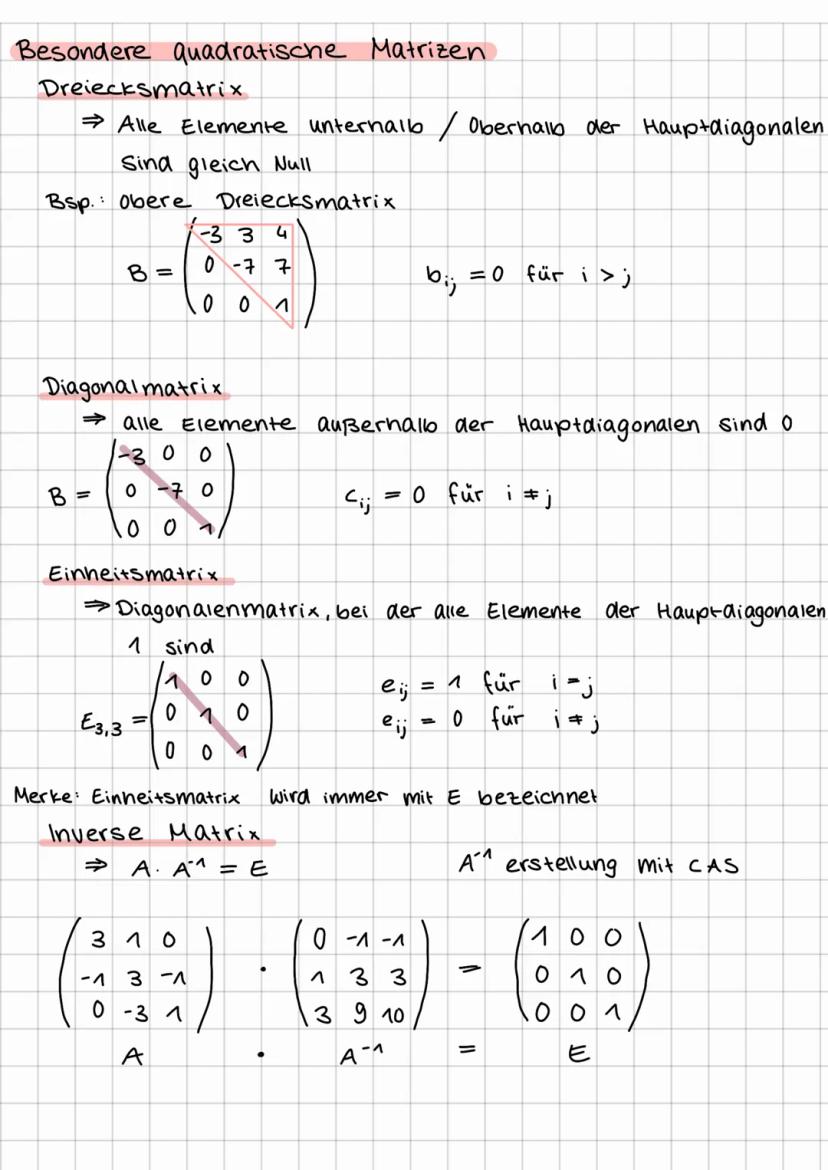 Besondere quadratische Matrizen
Dreiecksmatrix
⇒ Alle Elemente unterhalb / Oberhalb der Hauptdiagonalen
sind gleich Null
Bsp.: obere Dreiecksmatrix
-3 3 4
B = 0 -7 7 b_ij = 0 für i > j
0 0 1
Diagonalmatrix
⇒ alle Elemente außerhalb der Hauptdiagonalen sind 0
-3 0 0
B = 0 -7 0 c_ij = 0 für i ≠ j
0 0 1
Einheitsmatrix
⇒ Diagonalenmatrix, bei der alle Elemente der Hauptdiagonalen
1 sind
1 0 0 e_ij = 1 für i = j
E_3,3 = 0 1 0 e_ij = 0 für i ≠ j
0 0 1
Merke: Einheitsmatrix wird immer mit E bezeichnet
Inverse Matrix
⇒ A · A⁻¹ = E A⁻¹ erstellung mit CAS
3 1 0 0 -1 -1 1 0 0
-1 3 -1 · 1 3 3 = 0 1 0
0 -3 1 3 9 10 0 0 1
A · A⁻¹ = E